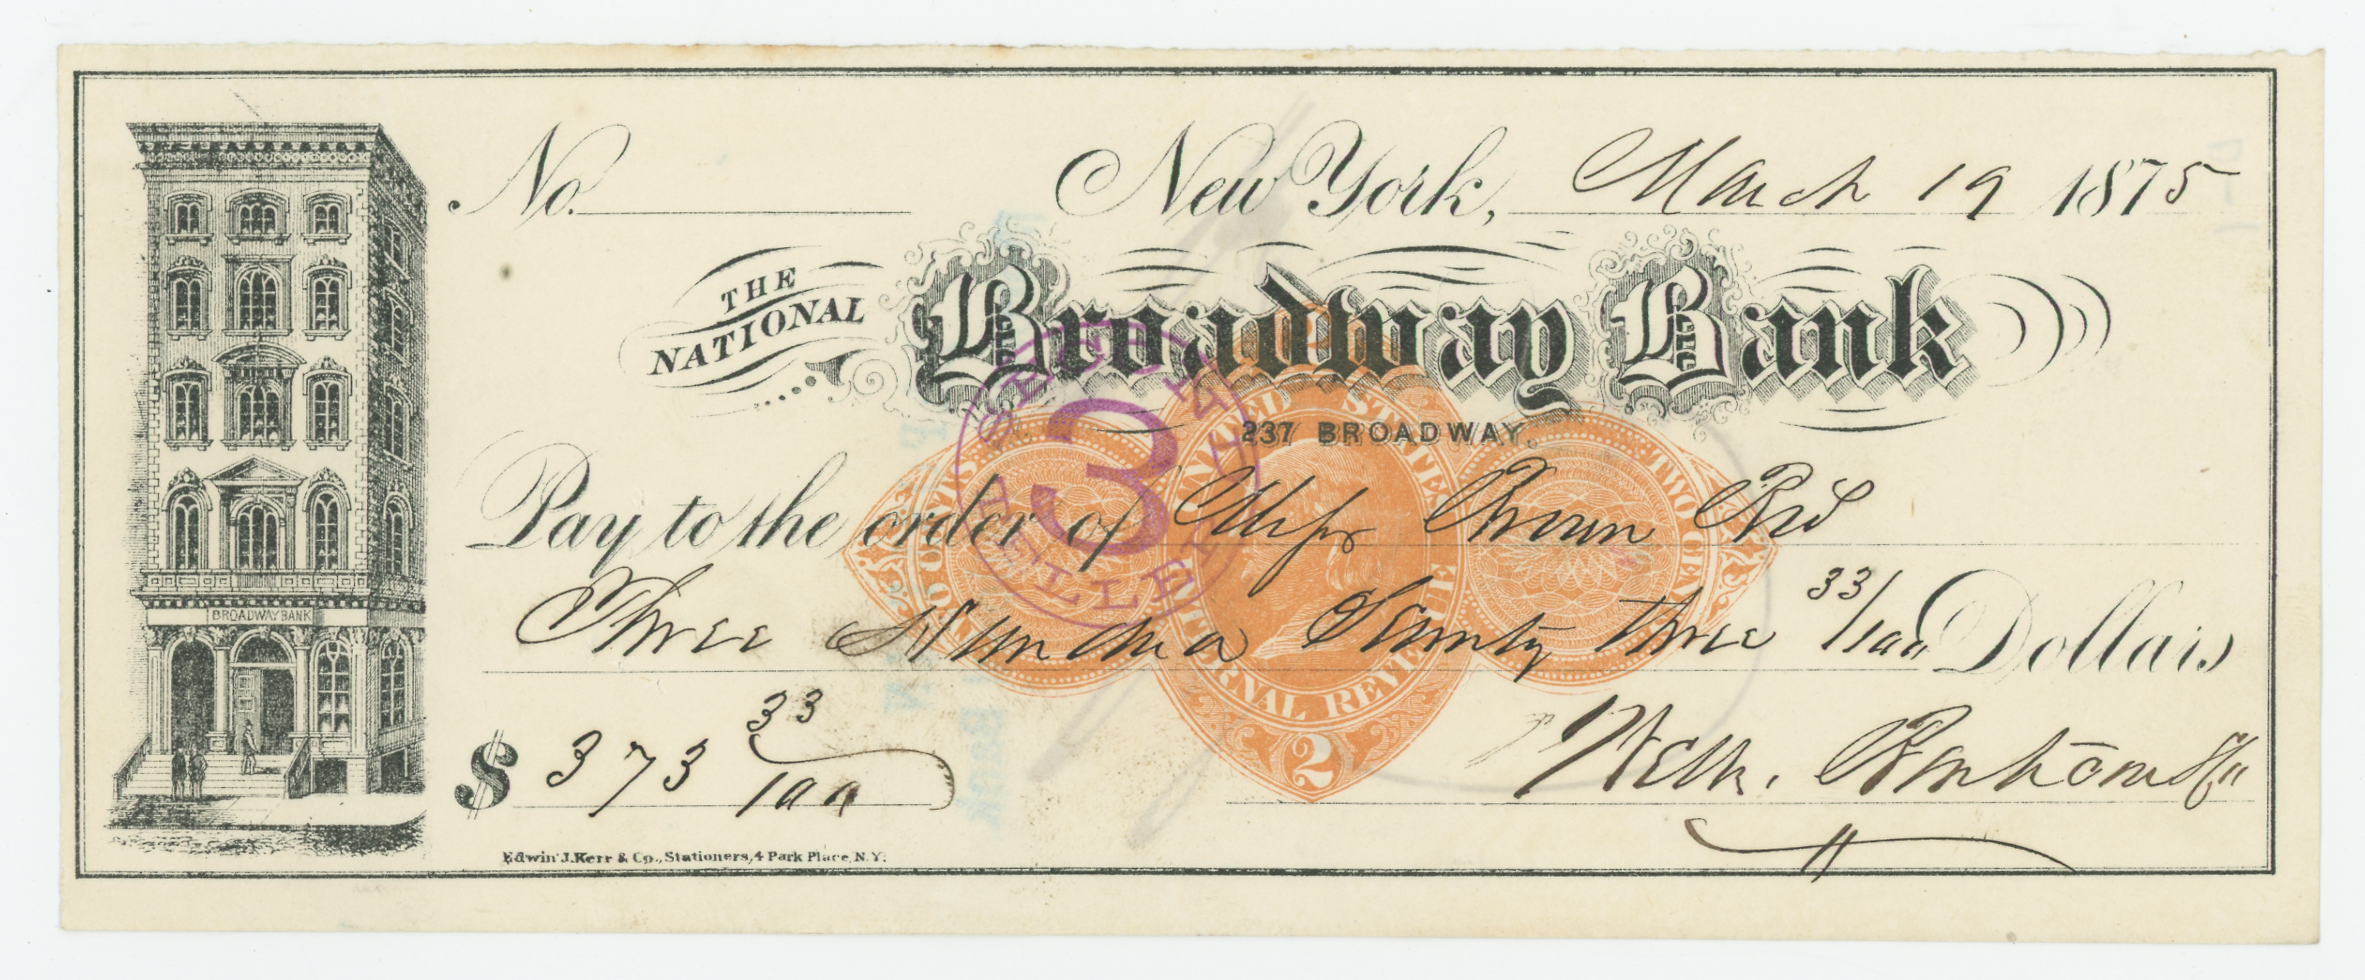 No. New York, March 19 1875
THE NATIONAL Broadway Bank
237 BROADWAY.
Pay to the order of Brown
Three Hundred Seventy three 33/100 Dollars
$ 373 33/100
Edwin J. Kerr & Co., Stationers, 4 Park Place, N.Y.
BROADWAY BANK
UNITED STATES INTERNAL REVENUE
TWO CENTS
2
3
TELLER